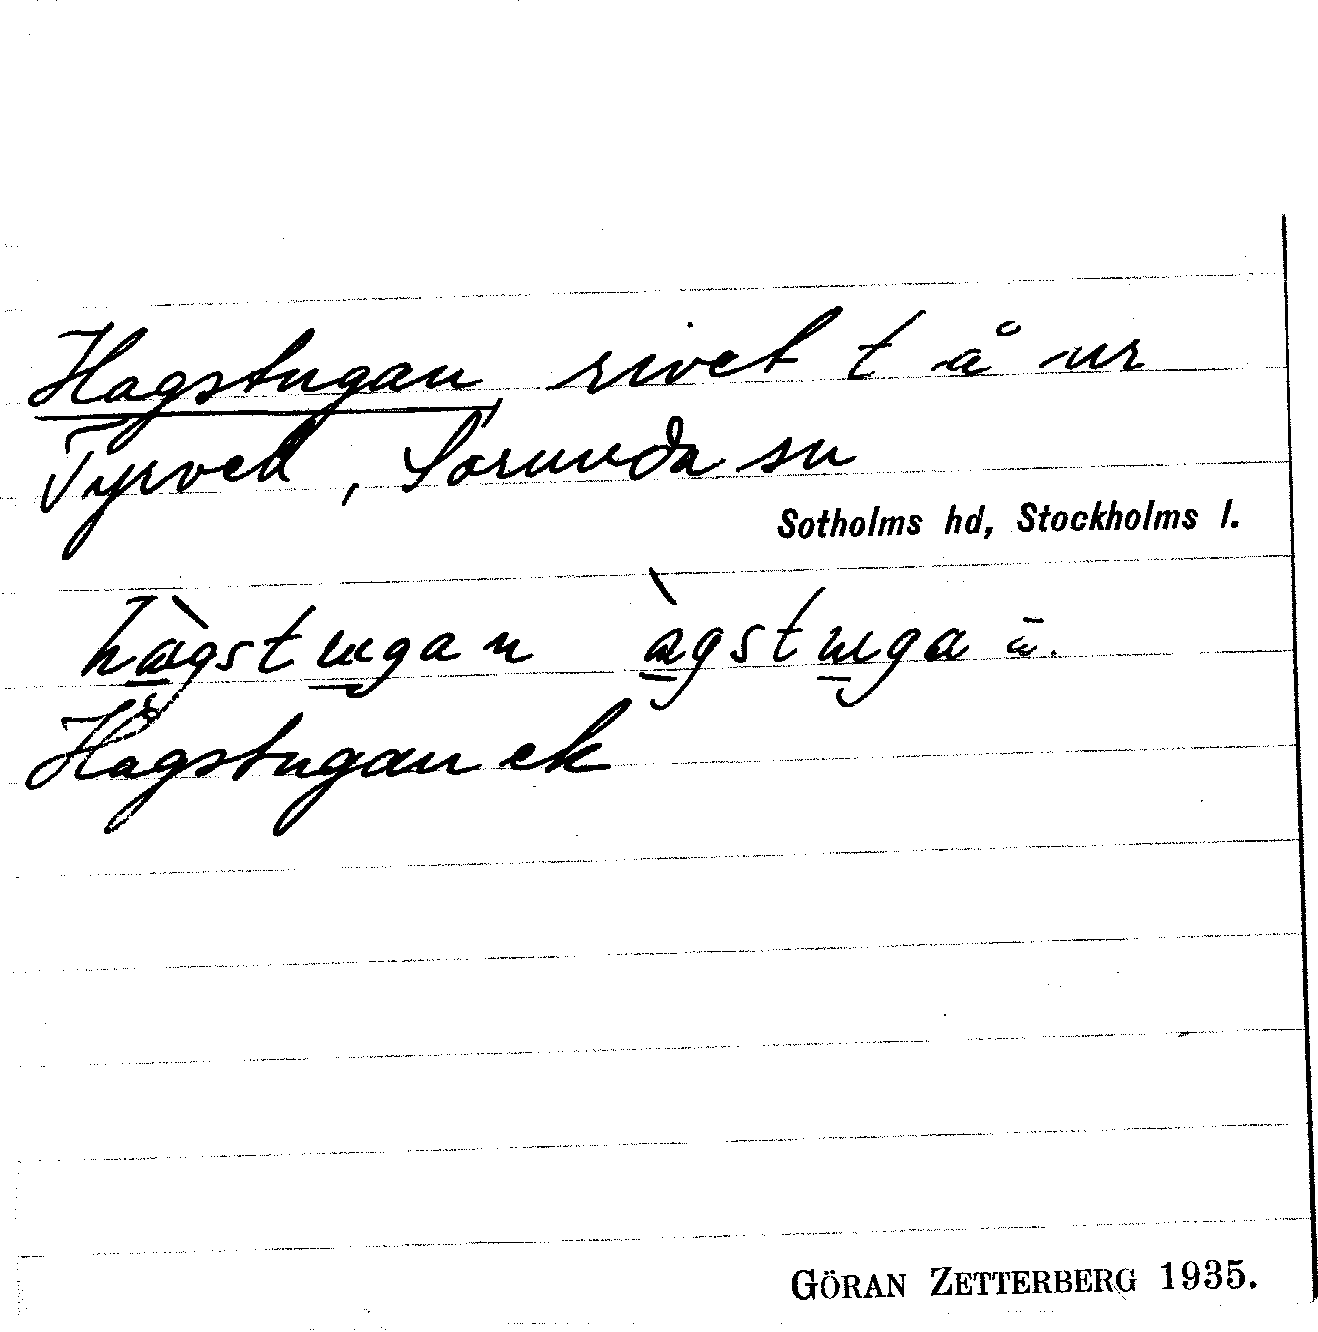 Hagstugan, rivet t å nr
Tyrved, Sorunda sn
Sotholms hd, Stockholms l.
hàgstugan àgstuga ä.
Hagstugan ek
GÖRAN ZETTERBERG 1935.